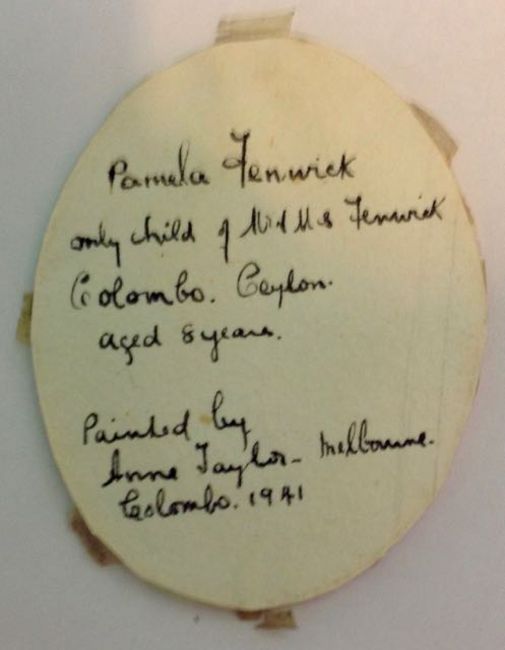 Pamela Fenwick
only child of Mr & Mrs Fenwick
Colombo. Ceylon.
aged 8 years.
Painted by
Anne Taylor - Melbourne.
Colombo. 1941